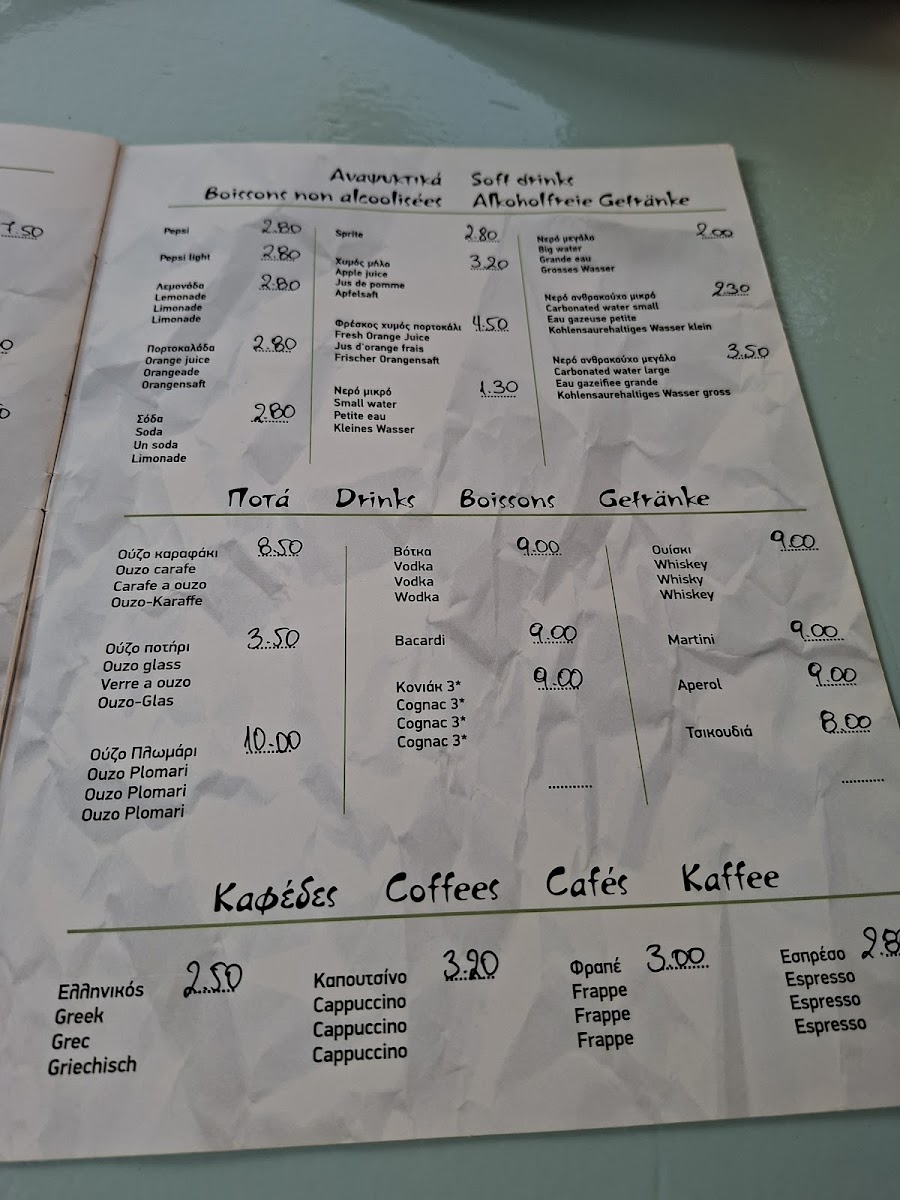 7.50
Αναψυκτικά Soft drinks
Boissons non alcoolisées Alkoholfreie Getränke
Pepsi 2.80
Pepsi light 2.80
Λεμονάδα 2.80
Lemonade
Limonade
Limonade
Πορτοκαλάδα 2.80
Orange juice
Orangeade
Orangensaft
Σόδα 2.80
Soda
Un soda
Limonade
Sprite 2.80
Χυμός μήλο 3.20
Apple juice
Jus de pomme
Apfelsaft
Φρέσκος χυμός πορτοκάλι 4.50
Fresh Orange Juice
Jus d'orange frais
Frischer Orangensaft
Νερό μικρό 1.30
Small water
Petite eau
Kleines Wasser
Νερό μεγάλο 2.00
Big water
Grande eau
Grosses Wasser
Νερό ανθρακούχο μικρό 2.30
Carbonated water small
Eau gazeuse petite
Kohlensaurehaltiges Wasser klein
Νερό ανθρακούχο μεγάλο 3.50
Carbonated water large
Eau gazeifiee grande
Kohlensaurehaltiges Wasser gross
Ποτά Drinks Boissons Getränke
Ούζο καραφάκι 8.50
Ouzo carafe
Carafe a ouzo
Ouzo-Karaffe
Ούζο ποτήρι 3.50
Ouzo glass
Verre a ouzo
Ouzo-Glas
Ούζο Πλωμάρι 10.00
Ouzo Plomari
Ouzo Plomari
Ouzo Plomari
Βότκα 9.00
Vodka
Vodka
Wodka
Bacardi 9.00
Κονιάκ 3* 9.00
Cognac 3*
Cognac 3*
Cognac 3*
Ουίσκι 9.00
Whiskey
Whisky
Whiskey
Martini 9.00
Aperol 9.00
Τσικουδιά 8.00
Καφέδες Coffees Cafés Kaffee
Ελληνικός 2.50
Greek
Grec
Griechisch
Καπουτσίνο 3.20
Cappuccino
Cappuccino
Cappuccino
Φραπέ 3.00
Frappe
Frappe
Frappe
Εσπρέσο 2.8
Espresso
Espresso
Espresso